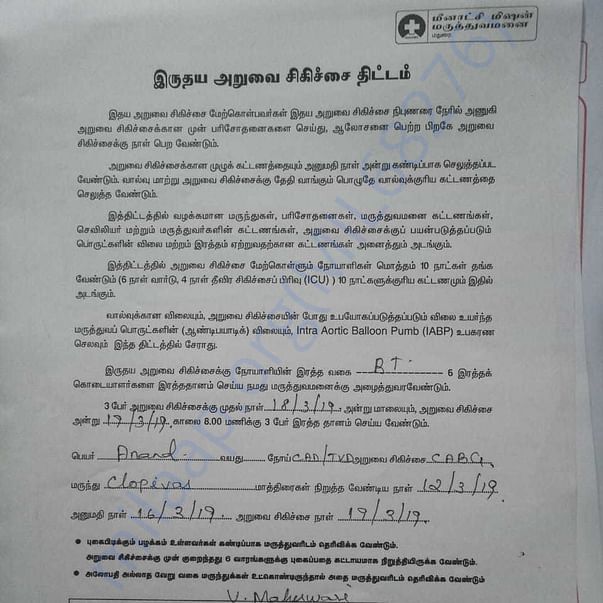 மீனாட்சி மிஷன்
மருத்துவமனை
மதுரை.
இருதய அறுவை சிகிச்சை திட்டம்
இதய அறுவை சிகிச்சை மேற்கொள்பவர்கள் இதய அறுவை சிகிச்சை நிபுணரை நேரில் அணுகி
அறுவை சிகிச்சைக்கான முன் பரிசோதனைகளை செய்து, ஆலோசனை பெற்ற பிறகே அறுவை
சிகிச்சைக்கு நாள் பெற வேண்டும்.
அறுவை சிகிச்சைக்கான முழுக் கட்டணத்தையும் அனுமதி நாள் அன்று கண்டிப்பாக செலுத்தப்பட
வேண்டும். வால்வு மாற்று அறுவை சிகிச்சைக்கு தேதி வாங்கும் பொழுதே வால்வுக்குரிய கட்டணத்தை
செலுத்த வேண்டும்.
இத்திட்டத்தில் வழக்கமான மருந்துகள், பரிசோதனைகள், மருத்துவமனை கட்டணங்கள்,
செவிலியர் மற்றும் மருத்துவர்களின் கட்டணங்கள், அறுவை சிகிச்சைக்குப் பயன்படுத்தப்படும்
பொருட்களின் விலை மற்றம் இரத்தம் ஏற்றுவதற்கான கட்டணங்கள் அனைத்தும் அடங்கும்.
இத்திட்டத்தில் அறுவை சிகிச்சை மேற்கொள்ளும் நோயாளிகள் மொத்தம் 10 நாட்கள் தங்க
வேண்டும் (6 நாள் வார்டு, 4 நாள் தீவிர சிகிச்சைப் பிரிவு (ICU) ) 10 நாட்களுக்குரிய கட்டணமும் இதில்
அடங்கும்.
வால்வுக்கான விலையும், அறுவை சிகிச்சையின் போது உபயோகப்படுத்தப்படும் விலை உயர்ந்த
மருத்துவப் பொருட்களின் (ஆண்டிபயாடிக்) விலையும், Intra Aortic Balloon Pumb (IABP) உபகரண
செலவும் இந்த திட்டத்தில் சேராது.
இருதய அறுவை சிகிச்சைக்கு நோயாளியின் இரத்த வகை BT. 6 இரத்தக்
கொடையாளர்களை இரத்ததானம் செய்ய நமது மருத்துவமனைக்கு அழைத்துவரவேண்டும்.
3 பேர் அறுவை சிகிச்சைக்கு முதல் நாள் 18/3/19, அன்று மாலையும், அறுவை சிகிச்சை
அன்று 19/3/19, காலை 8.00 மணிக்கு 3 பேர் இரத்த தானம் செய்ய வேண்டும்.
பெயர் Anand வயது நோய் CAD/TVD அறுவை சிகிச்சை CABG
மருந்து Clopivas மாத்திரைகள் நிறுத்த வேண்டிய நாள் 12/3/19
அனுமதி நாள் 16/3/19 அறுவை சிகிச்சை நாள் 19/3/19
● புகைபிடிக்கும் பழக்கம் உள்ளவர்கள் கண்டிப்பாக மருத்துவரிடம் தெரிவிக்க வேண்டும்.
அறுவை சிகிச்சைக்கு முன் குறைந்தது 6 வாரங்களுக்கு புகைப்பதை கட்டாயமாக நிறுத்தியிருக்க வேண்டும்.
● அலோபதி அல்லாத வேறு வகை மருந்துகள் உட்கொண்டிருந்தால் அதை மருத்துவரிடம் தெரிவிக்க வேண்டும்
V. Maheswari